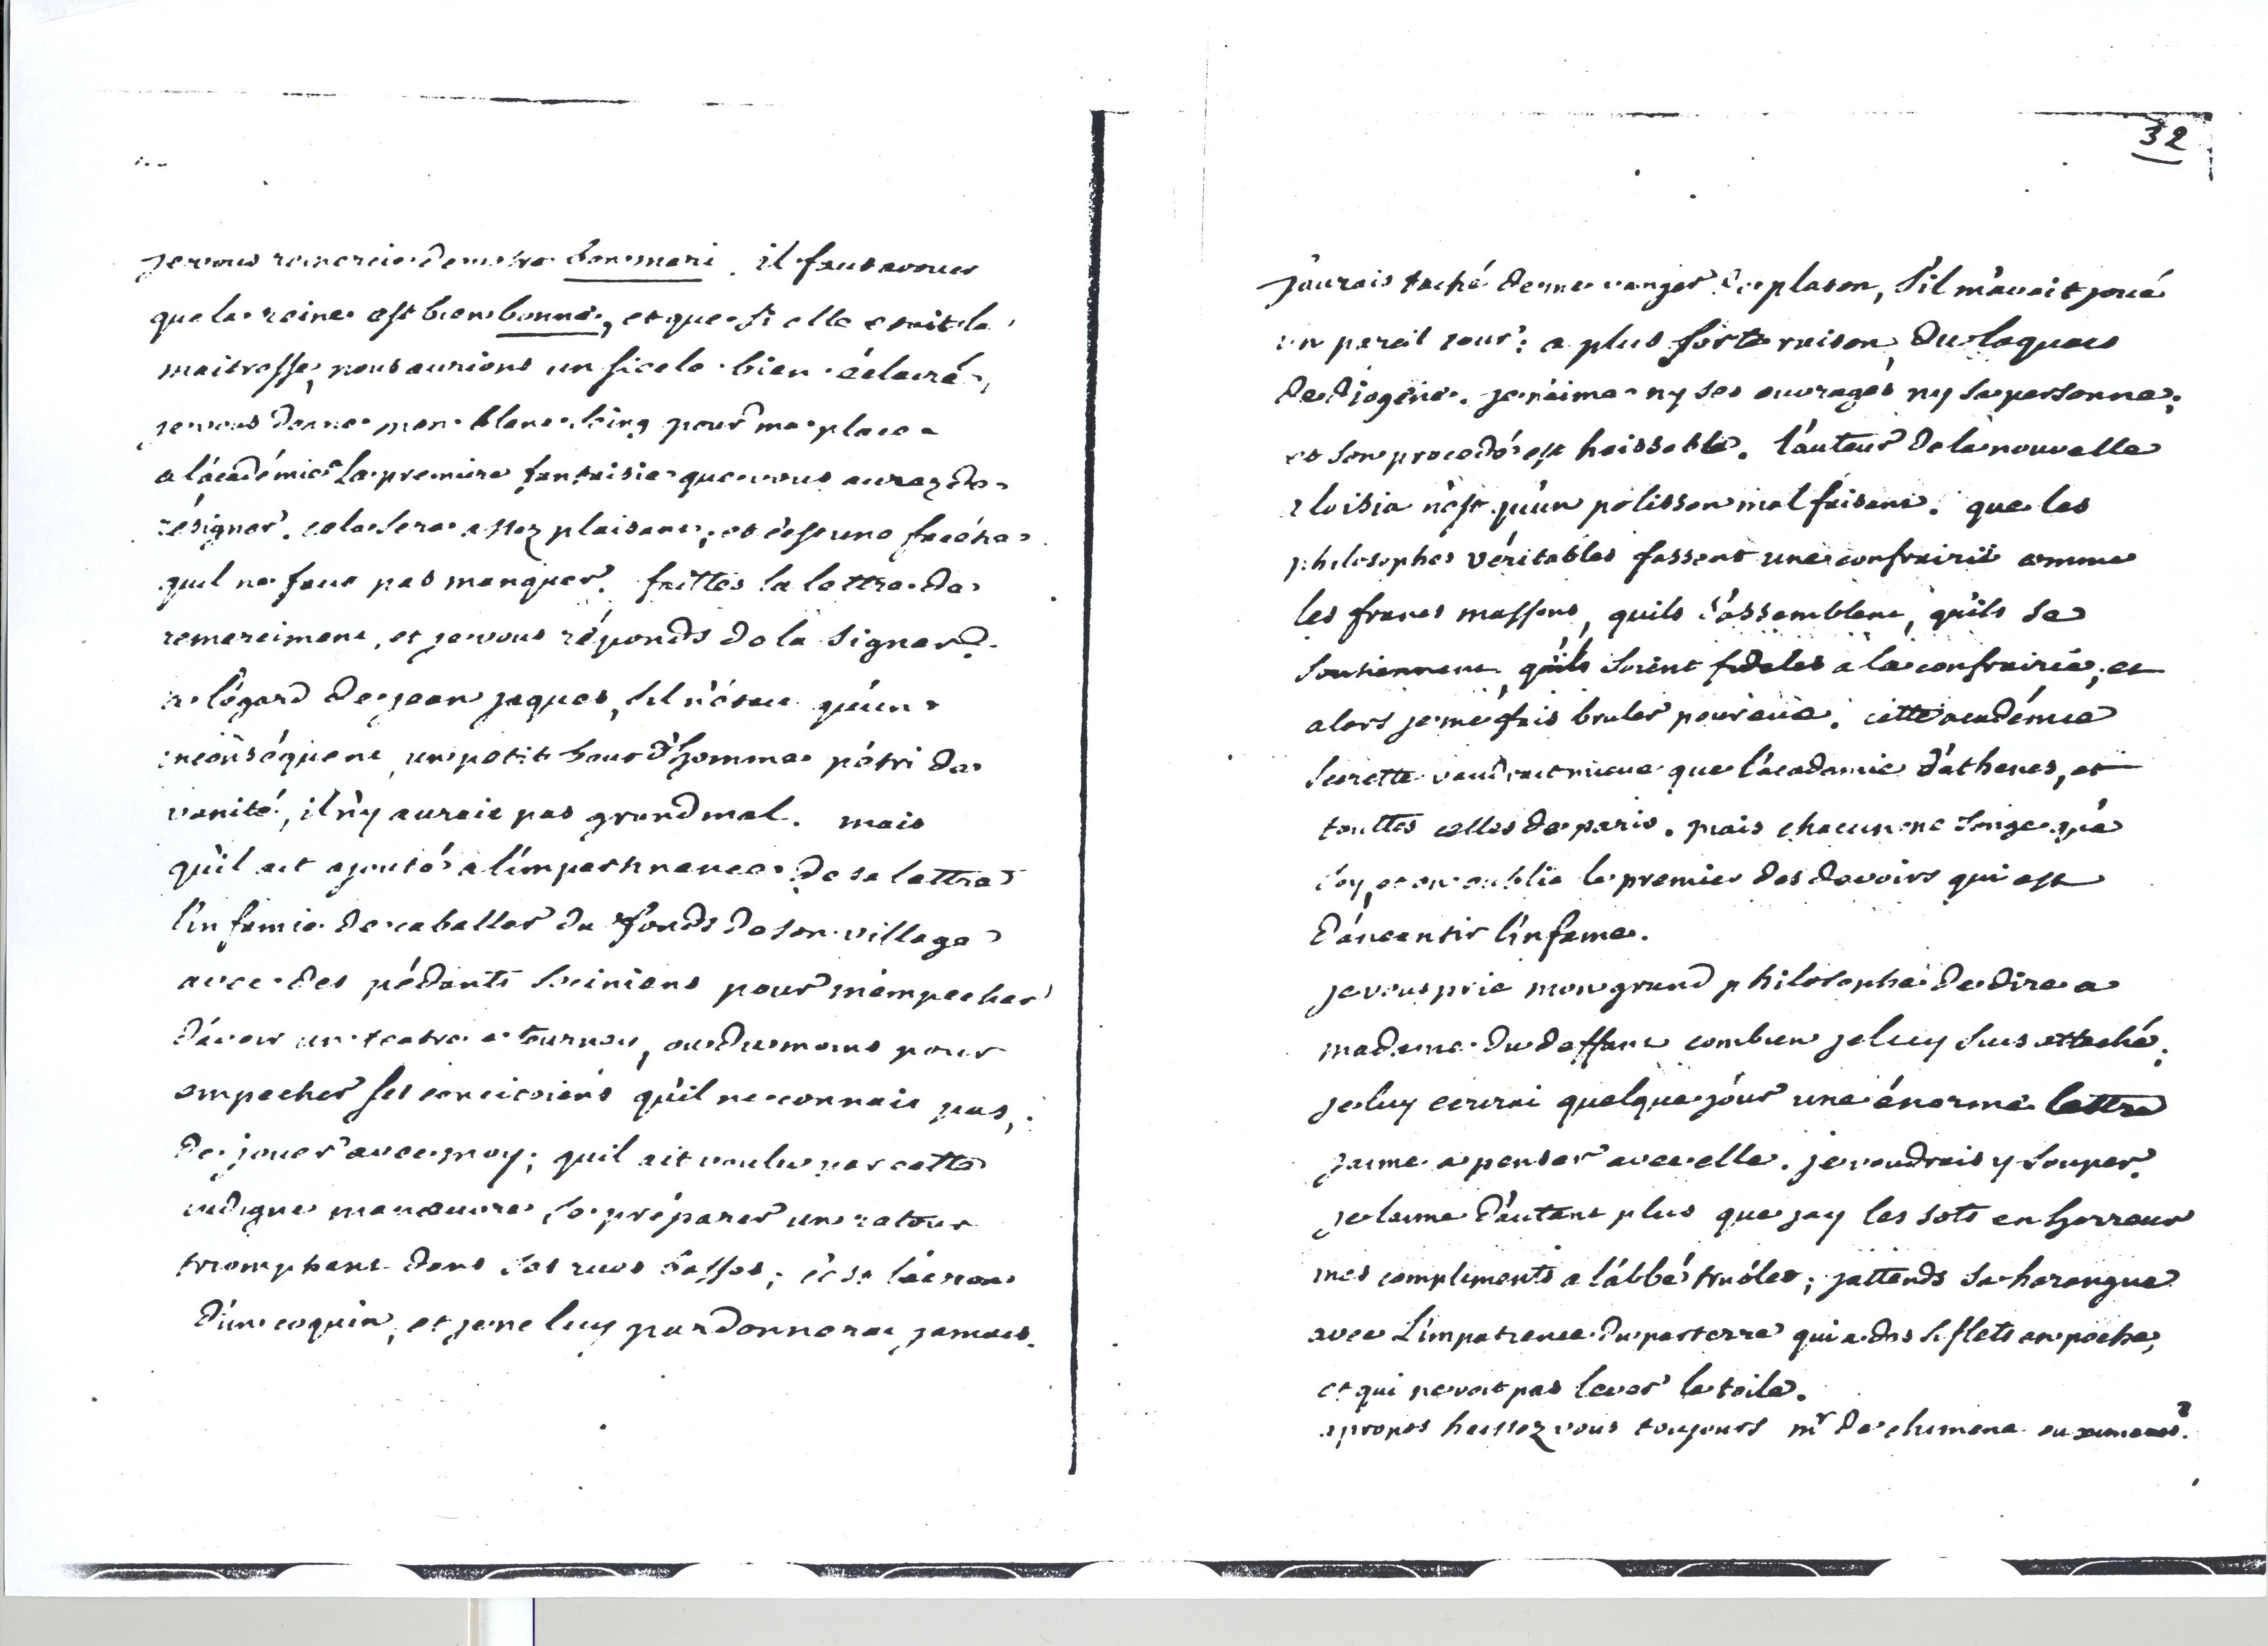 je vous remercie de metre bon mari. il faut avouer
que la reine est bien bonne, et que si elle etait la
maitresse, nous aurions un siecle bien éclairé,
je vous donne mon blanc seing pour ma place
a l'académie la premiere fantaisie que vous aurez de
résigner. cela sera assez plaisant; et c'est une facétie
quil ne faut pas manquer. faittes la lettre de
remerciment, et je vous réponds de la signer.
a l'égard de jean jaques, s'il n'était qu'un
inconséquent, un petit bout d'homme pétri de
vanité, il n'y aurait pas grand mal. mais
qu'il ait ajouté a l'impertinence de sa lettre
l'infamie de caballer du fonds de son village
avec des pédants sociniens pour m'empecher
d'avoir un teatre a tournay, ou du moins pour
empecher ses concitoiens qu'il ne connait pas,
de jouer avec moy; quil ait voulu par cette
indigne manœuvre se préparer un retour
triomphant dans ses rues basses; c'est l'action
d'un coquin, et je ne luy pardonnerai jamais.
32
j'aurais taché de me vanger de platon, s'il m'avait joué
un pareil tour; a plus forte raison du laquais
de diogene. je n'aime ny ses ouvrages ny sa personne,
et son procedé est haissable. l'auteur de la nouvelle
aloisia n'est qu'un polisson malfaisant. que les
philosophes véritables fassent une confrairie comme
les francs massons, quils s'assemblent, qu'ils se
soutiennent, qu'ils soient fideles a la confrairie, et
alors je me fais bruler pour eux. cette académie
secrette vaudrait mieux que l'academie d'athenes, et
touttes celles de paris. mais chacun ne songe qu'a
soy, et on oublie le premier des devoirs qui est
d'anéantir l'infame.
je vous prie mon grand philosophe de dire a
madame du deffant combien je luy suis attaché.
je luy ecrirai quelque jour une énorme lettre
jaime a penser avec elle. je voudrais y souper.
je laime d'autant plus que jay les sots en horreur
mes compliments a l'abbé trublet; jattends sa harangue
avec l'impatience du parterre qui a des siflets en poche,
et qui ne voit pas lever la toile.
apropos haissez vous toujours mr de chimene ou ximenes?